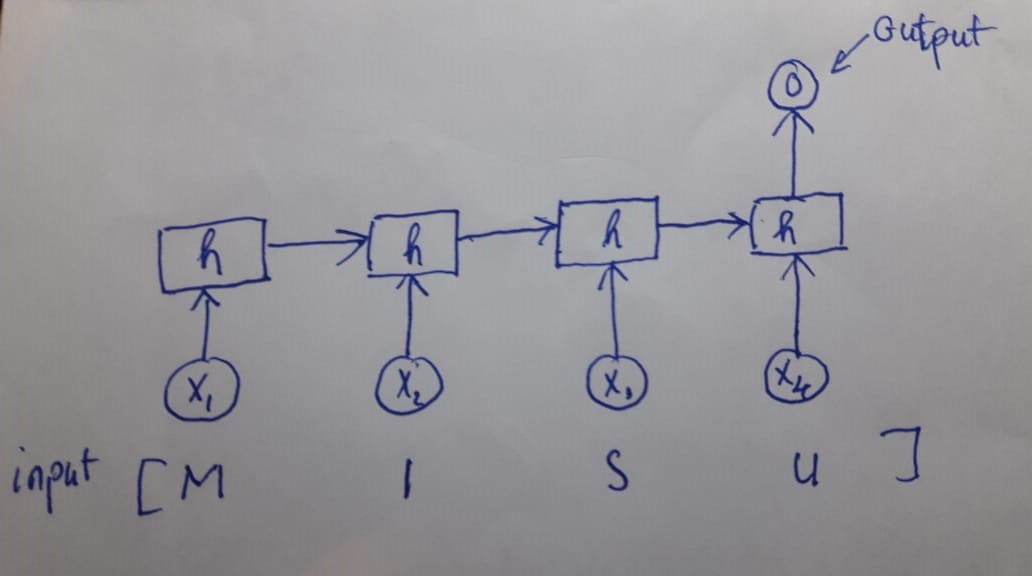 Output
O
h h h h
x₁ x₂ x₃ x₄
input [ M I S U ]